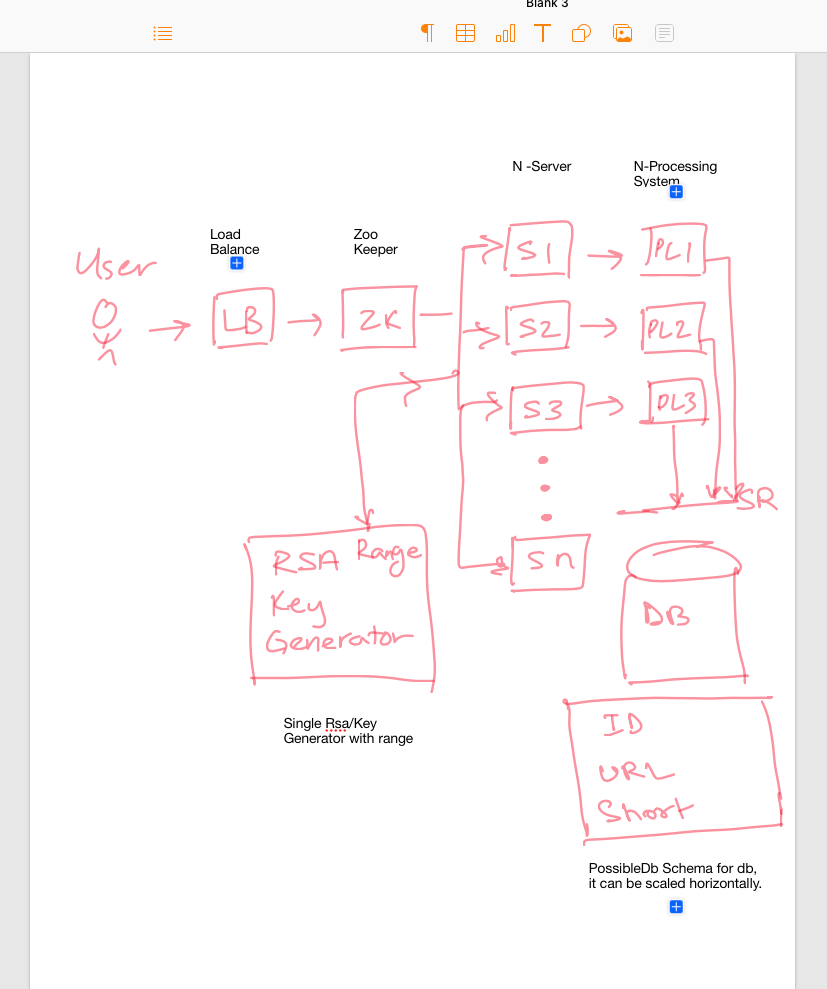 Blank 3
N -Server
N-Processing
System
Load
Balance
Zoo
Keeper
User
LB
ZK
S1
PL1
S2
PL2
S3
PL3
SR
Sn
RSA Range
Key
Generator
DB
Single Rsa/Key
Generator with range
ID
URL
Short
PossibleDb Schema for db,
it can be scaled horizontally.